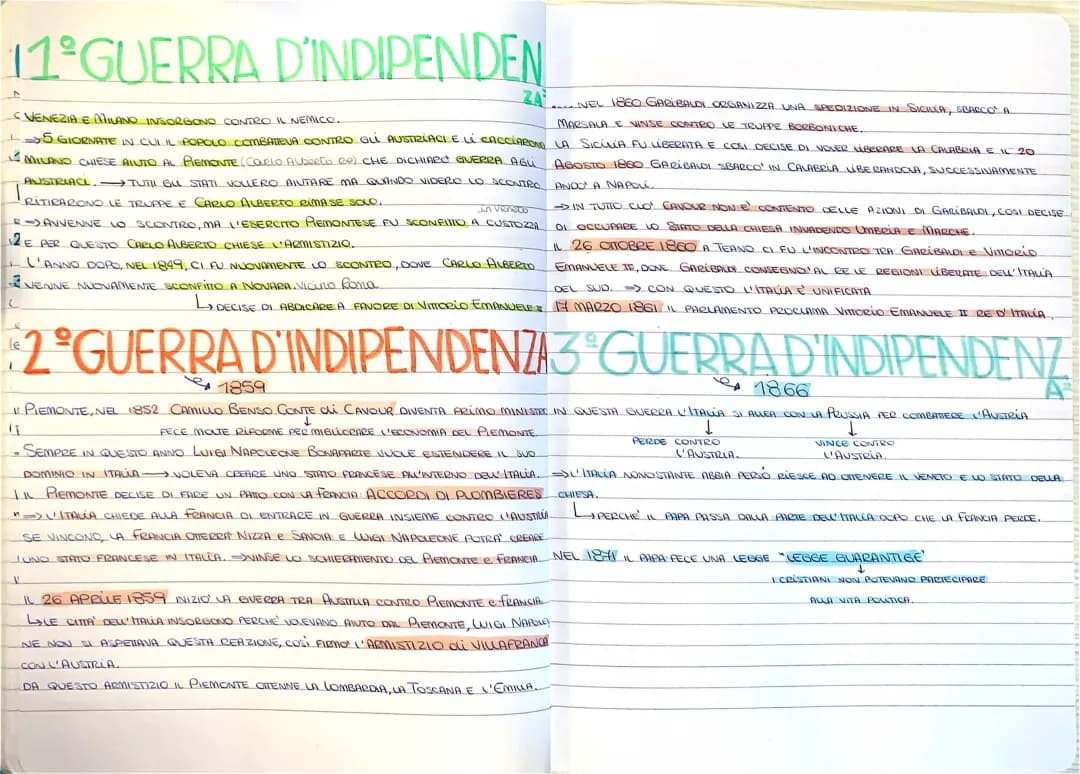 1º GUERRA D'INDIPENDEN
ZA
VENEZIA E MILANO INSORGONO CONTRO IL NEMICO.
→5 GIORNATE IN CUI IL POPOLO COMBATTEVA CONTRO GLI AUSTRIACI E LI CACCIARONO
MILANO CHIESE AIUTO AL PIEMONTE (CARLO ALBERTO RE) CHE DICHIARÒ GUERRA AGLI
AUSTRIACI. → TUTTI GLI STATI VOLLERO AIUTARE MA QUANDO VIDERO LO SCONTRO
RITIRARONO LE TRUPPE E CARLO ALBERTO RIMASE SOLO.
in VENETO
→ AVVENNE LO SCONTRO, MA L'ESERCITO PIEMONTESE FU SCONFITTO A CUSTOZZA
E PER QUESTO CARLO ALBERTO CHIESE L'ARMISTIZIO.
L'ANNO DOPO, NEL 1849, CI FU NUOVAMENTE LO SCONTRO, DOVE CARLO ALBERTO
VENNE NUOVAMENTE SCONFITTO A NOVARA. Vicino Roma
↳ DECISE DI ABDICARE A FAVORE DI VITTORIO EMANUELE II
2º GUERRA D'INDIPENDENZA
↳ 1859
PIEMONTE, NEL 1852 CAMILLO BENSO CONTE di CAVOUR DIVENTA PRIMO MINISTRO
↓
FECE MOLTE RIFORME PER MIGLIORARE L'ECONOMIA DEL PIEMONTE.
- SEMPRE IN QUESTO ANNO LUIGI NAPOLEONE BONAPARTE VUOLE ESTENDERE IL SUO
DOMINIO IN ITALIA → VOLEVA CREARE UNO STATO FRANCESE ALL'INTERNO DELL'ITALIA.
IL PIEMONTE DECISE DI FARE UN PATTO CON LA FRANCIA: ACCORDI DI PLOMBIERES
→ L'ITALIA CHIEDE ALLA FRANCIA DI ENTRARE IN GUERRA INSIEME CONTRO L'AUSTRIA
SE VINCONO, LA FRANCIA OTTERRÀ NIZZA E SAVOIA E LUIGI NAPOLEONE POTRÀ CREARE
UNO STATO FRANCESE IN ITALIA. ⇒ VINSE LO SCHIERAMENTO DEL PIEMONTE e FRANCIA
IL 26 APRILE 1859 INIZIÒ LA GUERRA TRA AUSTRIA CONTRO PIEMONTE e FRANCIA
↳ LE CITTÀ DELL'ITALIA INSORGONO PERCHÉ VOLEVANO AIUTO DAL PIEMONTE, LUIGI NAPOLEO
NE NON SI ASPETTAVA QUESTA REAZIONE, COSÌ FIRMÒ L'ARMISTIZIO di VILLAFRANCA
CON L'AUSTRIA.
DA QUESTO ARMISTIZIO IL PIEMONTE OTTENNE LA LOMBARDIA, LA TOSCANA E L'EMILIA.
.... NEL 1860 GARIBALDI ORGANIZZA UNA SPEDIZIONE IN SICILIA, SBARCÒ A
MARSALA E VINSE CONTRO LE TRUPPE BORBONICHE.
LA SICILIA FU LIBERATA E COSÌ DECISE DI VOLER LIBERARE LA CALABRIA E IL 20
AGOSTO 1860 GARIBALDI SBARCÒ IN CALABRIA LIBERANDOLA, SUCCESSIVAMENTE
ANDÒ A NAPOLI.
→ IN TUTTO CIÒ CAVOUR NON È CONTENTO DELLE AZIONI DI GARIBALDI, COSÌ DECISE
DI OCCUPARE LO STATO DELLA CHIESA INVADENDO UMBRIA E MARCHE.
IL 26 OTTOBRE 1860 A TEANO CI FU L'INCONTRO TRA GARIBALDI e VITTORIO
EMANUELE II, DOVE GARIBALDI CONSEGNÒ AL RE LE REGIONI LIBERATE DELL'ITALIA
DEL SUD. ⇒ CON QUESTO L'ITALIA È UNIFICATA
17 MARZO 1861 IL PARLAMENTO PROCLAMA VITTORIO EMANUELE II RE D'ITALIA.
3º GUERRA D'INDIPENDENZ
A
↳ 1866
IN QUESTA GUERRA L'ITALIA SI ALLEA CON LA PRUSSIA PER COMBATTERE L'AUSTRIA
↓ ↓
PERDE CONTRO VINCE CONTRO
L'AUSTRIA. L'AUSTRIA.
⇒ L'ITALIA NONOSTANTE ABBIA PERSO RIESCE AD OTTENERE IL VENETO E LO STATO DELLA
CHIESA.
↳ PERCHÉ IL PAPA PASSA DALLA PARTE DELL'ITALIA DOPO CHE LA FRANCIA PERDE.
NEL 1871 IL PAPA FECE UNA LEGGE "LEGGE GUARANTIGE"
↓
I CRISTIANI NON POTEVANO PARTECIPARE
ALLA VITA POLITICA.